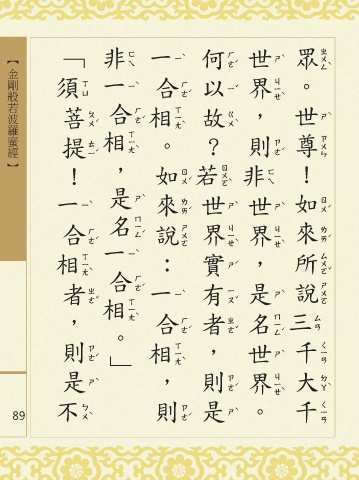 眾。世尊！如來所說三千大千
世界，則非世界，是名世界。
何以故？若世界實有者，則是
一合相。如來說：一合相，則
非一合相，是名一合相。」
「須菩提！一合相者，則是不
【金剛般若波羅蜜經】
89